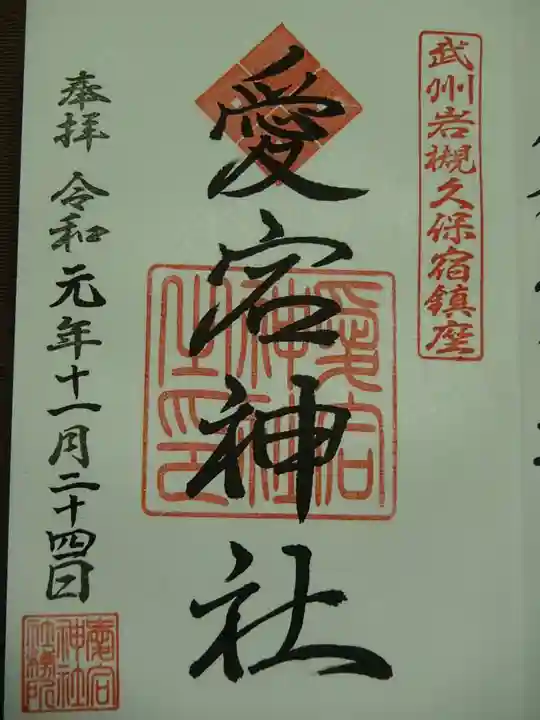 武州岩槻久保宿鎮座
愛宕神社
愛宕
神社
之印
奉拝 令和元年十一月二十四日
愛宕
神社
社務所